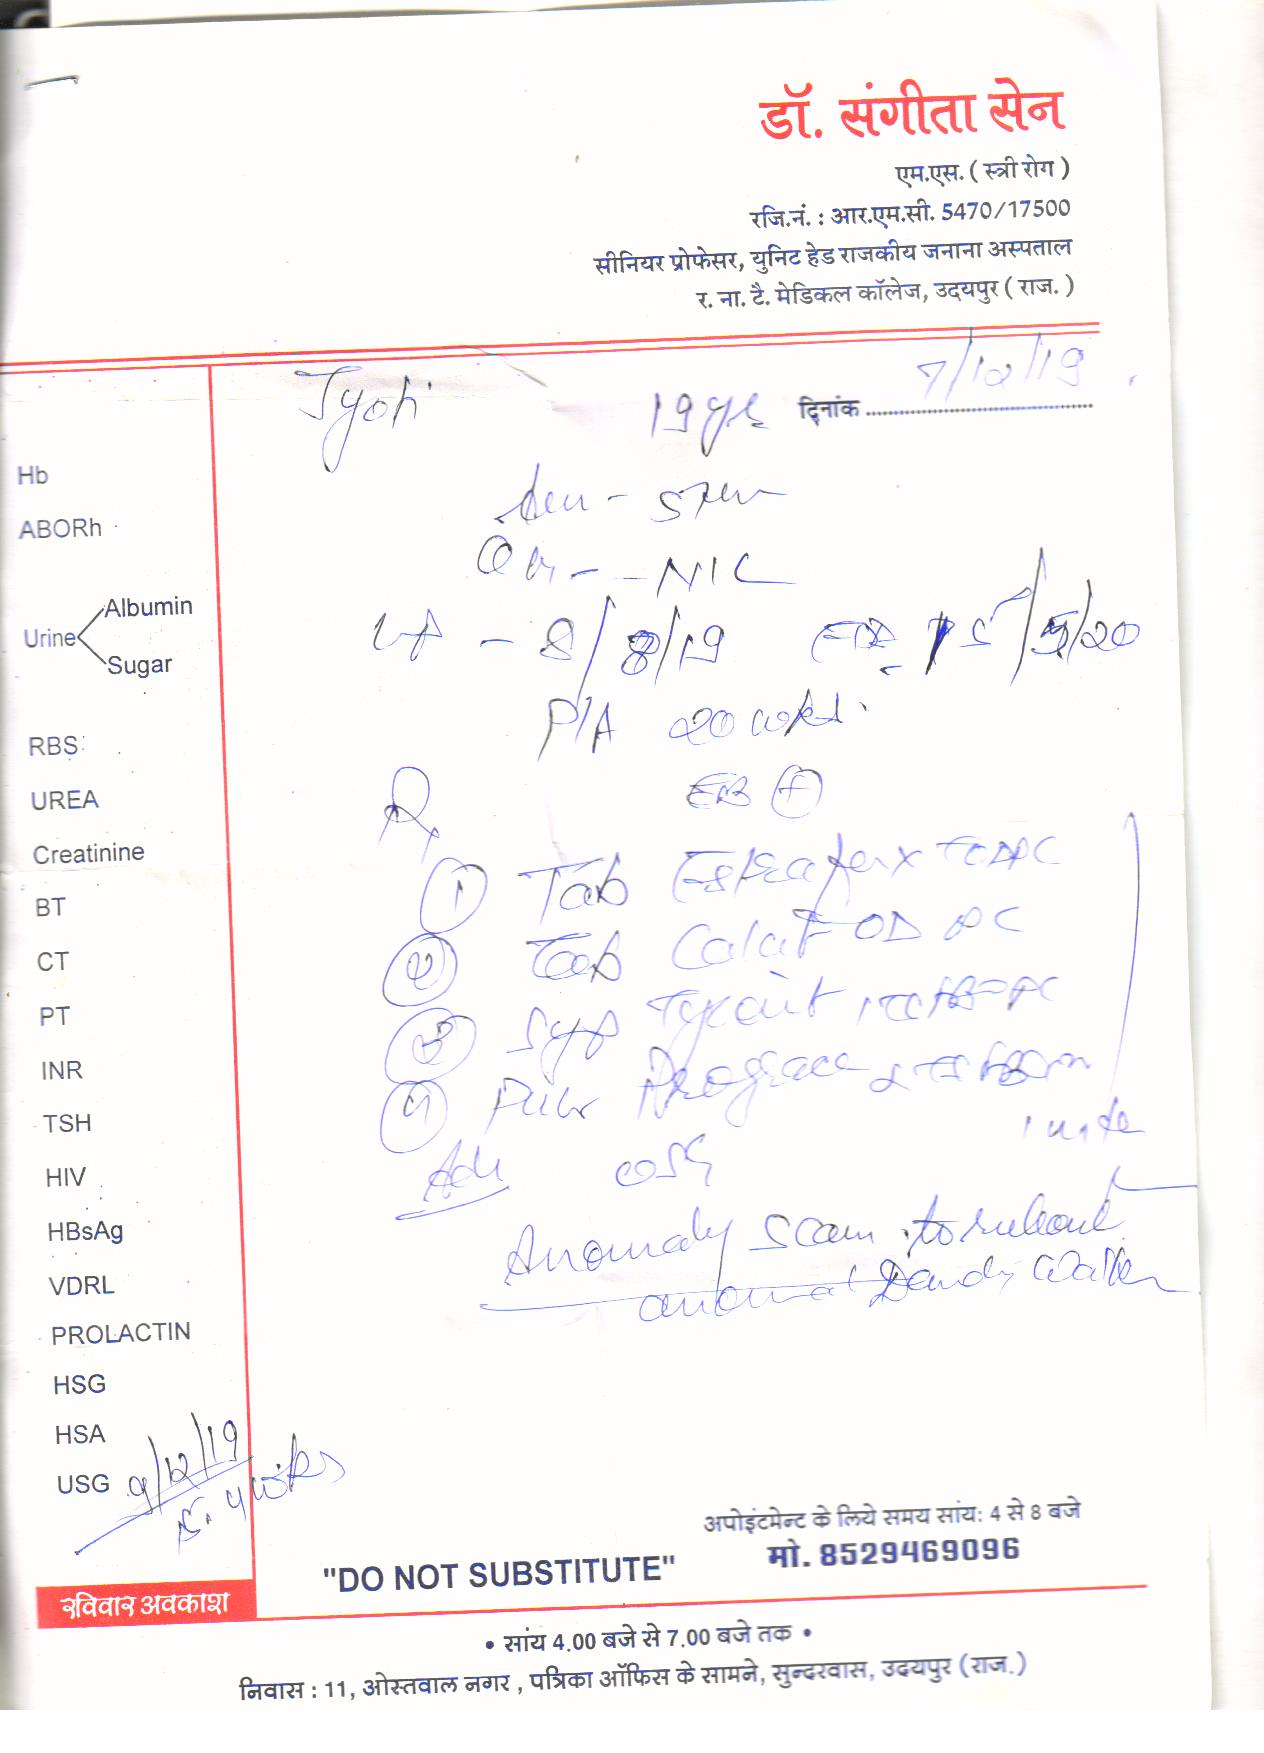 डॉ. संगीता सेन
एम.एस. ( स्त्री रोग )
रजि.नं. : आर.एम.सी. 5470/17500
सीनियर प्रोफेसर, युनिट हेड राजकीय जनाना अस्पताल
र. ना. टै. मेडिकल कॉलेज, उदयपुर ( राज. )
Jyoti 19 yrs दिनांक 7/12/19
Hb
ABORh
Urine
Albumin
Sugar
RBS
UREA
Creatinine
BT
CT
PT
INR
TSH
HIV
HBsAg
VDRL
PROLACTIN
HSG
HSA
USG 9/12/19
NIC
- 8/8/19 15/5/20
P/A 20 wks.
Rx
① Tab OD PC
② Tab OD PC
③ Syp
④
Adv USG
Anomaly Scan to rule out
Dandy Walker
"DO NOT SUBSTITUTE"
अपोइंटमेन्ट के लिये समय सांय: 4 से 8 बजे
मो. 8529469096
रविवार अवकाश
• सांय 4.00 बजे से 7.00 बजे तक •
निवास : 11, ओस्तवाल नगर , पत्रिका ऑफिस के सामने, सुन्दरवास, उदयपुर (राज.)